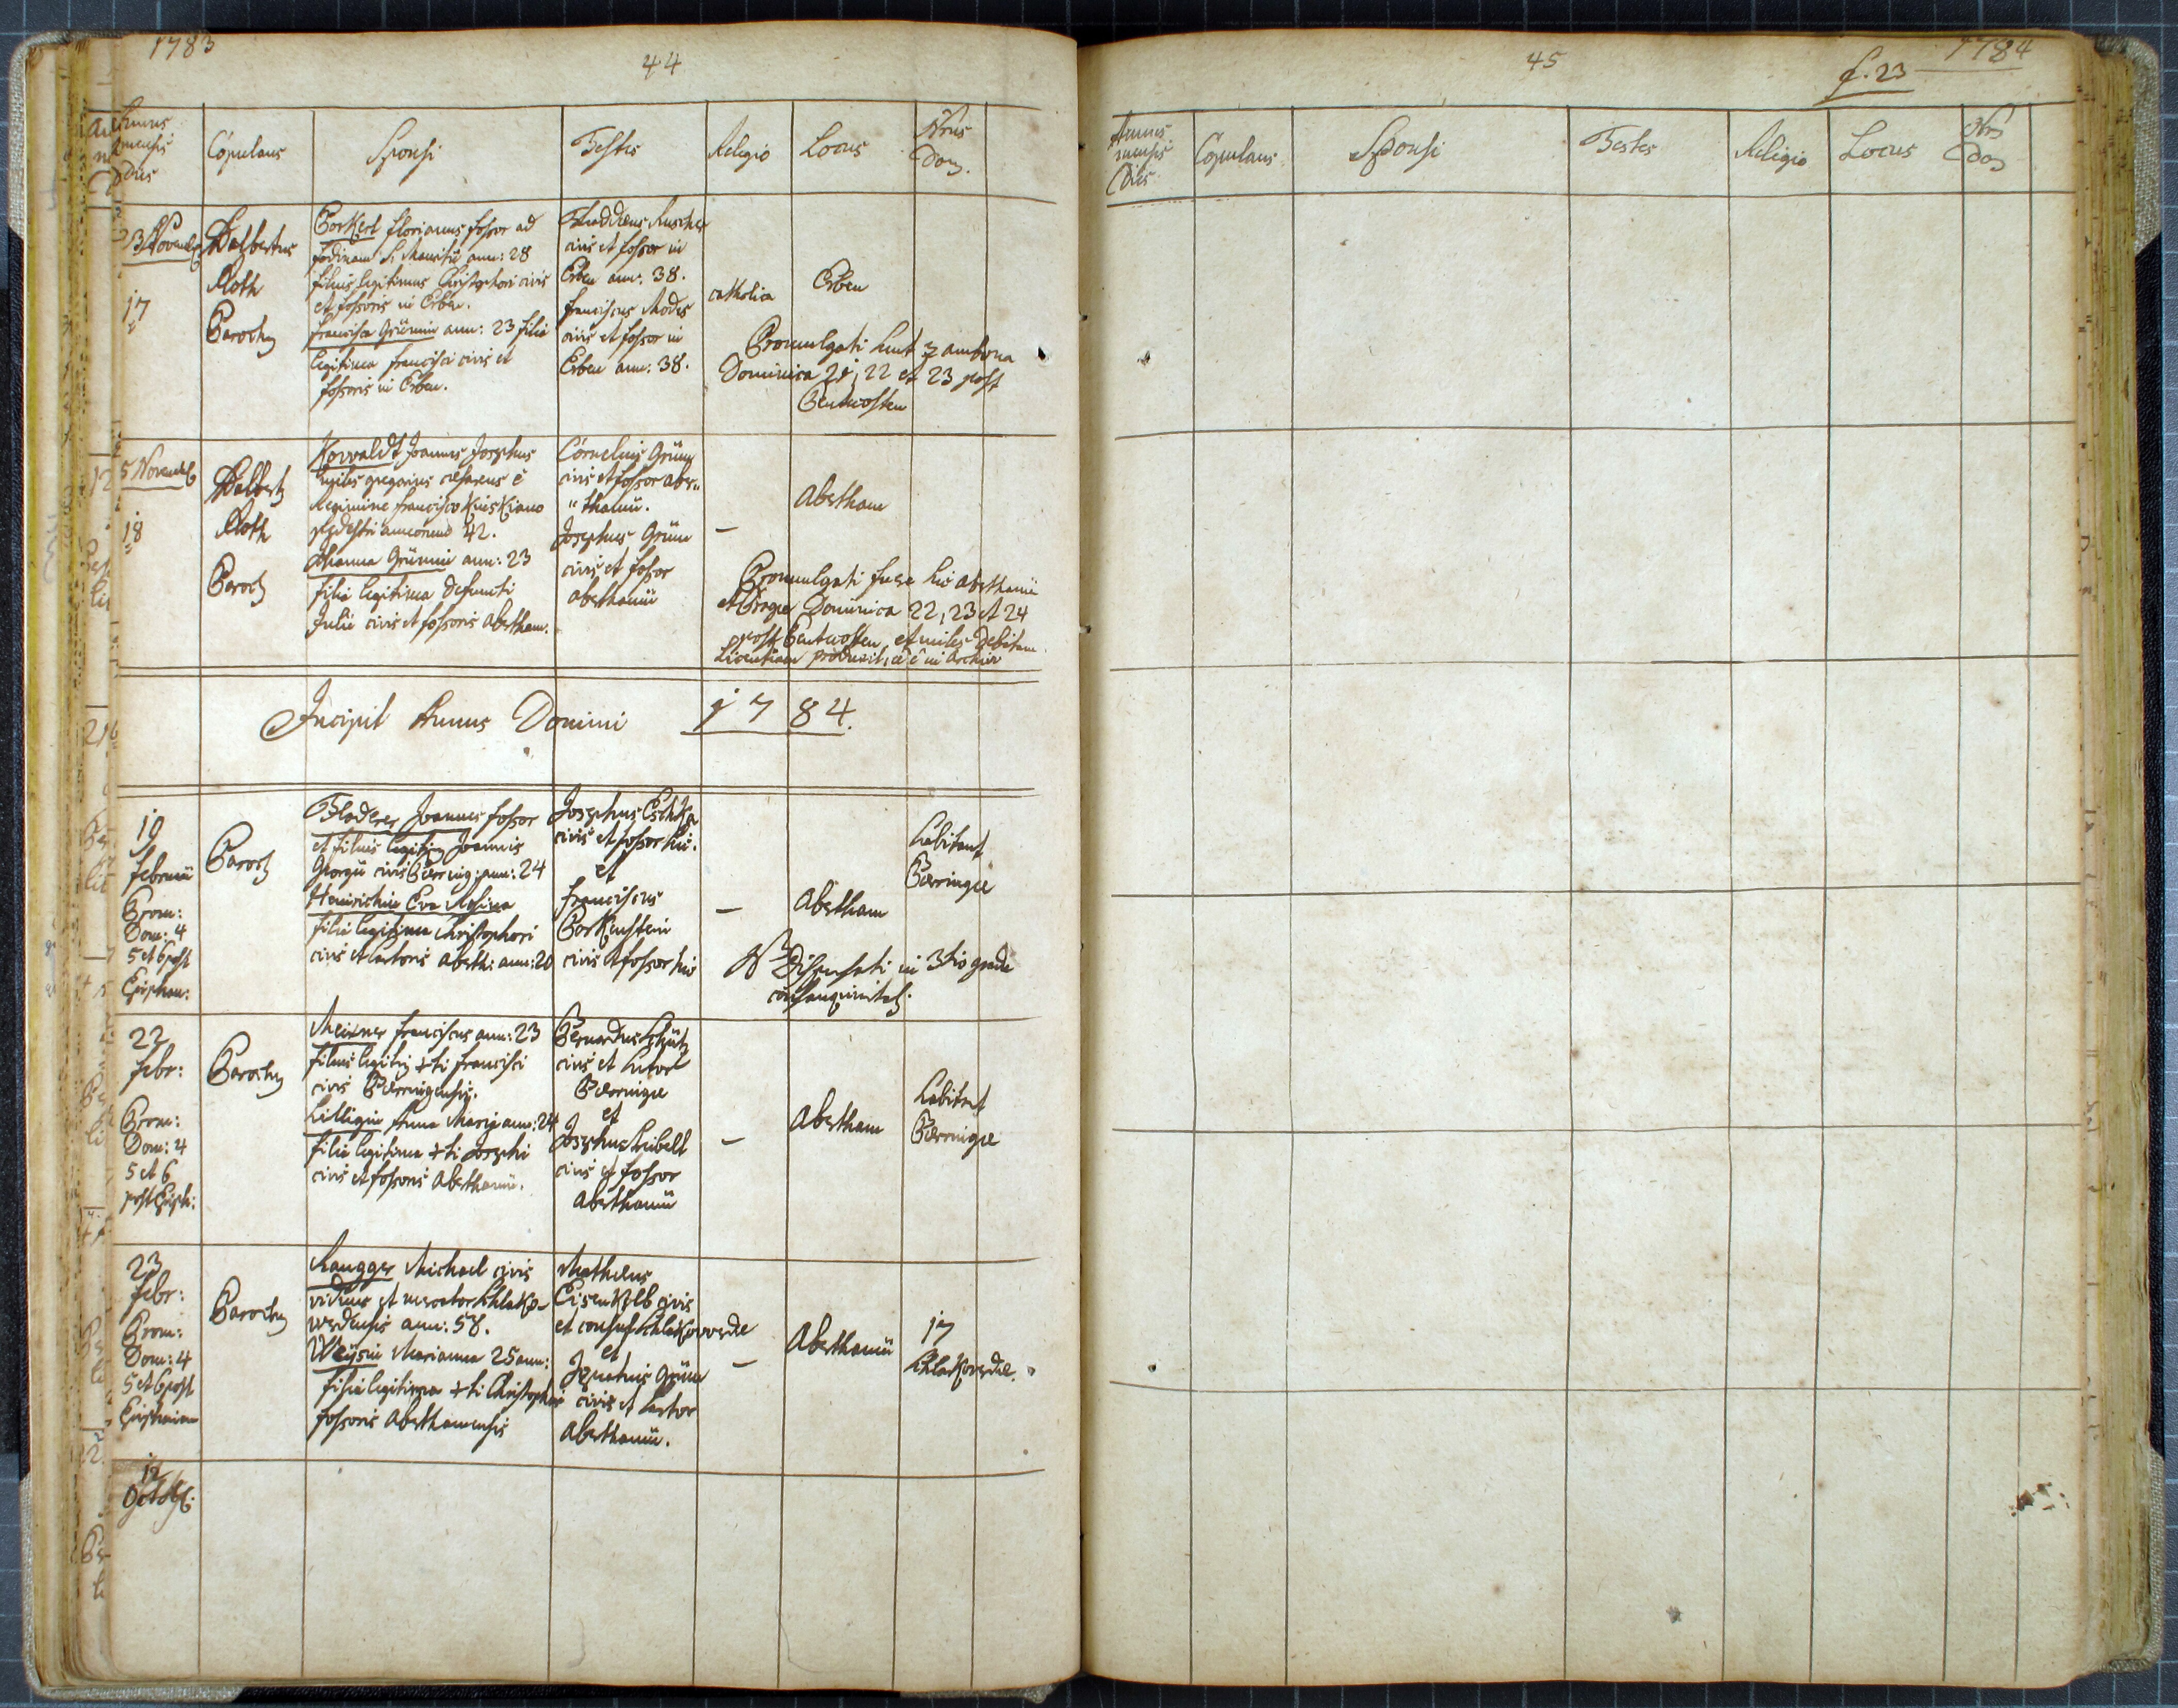 1783
44
Annus
mensis
dies
Copulans
Sponsi
Testes
Religio
Locus
Nrus
Dom.
3 Novemb
17
Adalbertus
Roth
Paroch
Borkert Florianus fossor ad
fodinam S. Mauritii ann: 28
filius legitimus Christophori civis
et fossoris in Erben.
Francisca Grünnin ann: 23 filia
legitima Francisci civis et
fossoris in Erben.
Thaddæus
civis et fossor in
Erben ann: 38.
Franciscus Mades
civis et fossor in
Erben ann: 38.
catholica
Erben
Promulgati sunt ambona
Dominica 21, 22 et 23 post
Pentecosten
5 Novemb
18
Adalbert
Roth
Paroch
Korvaldt Joannes Josephus
miles gregarius cæsareus è
Regimine Francisco Kinskiano
pedestri annorum 42.
Grünnin ann: 23
filia legitima defuncti
Julii civis et fossoris Abertham.
Cornelius Grünn
civis et fossor Aber„
„thamii.
Josephus Grünn
civis et fossor
Aberthamii
–
Abertham
Promulgati fuere hic Aberthamii
et Pragæ Dominica 22, 23 et 24
post Pentecosten, et miles debitam
Licentiam produxit, in Archiv
Incipit Annus Domini 1784.
19
Februarii
Prom:
Dom: 4
5 et 6 post
Epiphan:
Paroch
Fladerer Joannes fossor
et filius legitim Joannis
Georgii civis Bærring: ann: 24
Heinrichin Eva Rosina
filia legitima Christophori
civis et sartoris Aberth: ann: 20
Josephus
civis et fossor hic.
et
Franciscus
Borkenstein
civis et fossor hic
–
Abertham
habitant
Bærringæ
NB Dispensati in 3tio gradu
consanguinitat.
22
Febr:
Prom:
Dom: 4
5 et 6
post Epiph:
Paroch
Meixner Franciscus ann: 23
filius legitim +ti Francisci
civis Bærringensis.
Lilligin Anna Maria ann: 24
filia legitima +ti Josephi
civis et fossoris Aberthamii.
Bernardus Schütz
civis et sutor
Bærringæ
et
Josephus Leibelt
civis et fossor
Aberthamii
–
Abertham
habitant
Bærringæ
23
Febr:
Prom:
Dom: 4
5 et 6 post
Epiphaniam
Paroch
Raugger Michael civis
viduus et mercator Schlako-
werdensis ann: 58.
Weÿsin Marianna 25 ann:
filia legitima +ti Christophori
fossoris Aberthamensis
Mathæus
Eisenkolb civis
et consul Schlakowerdæ
et
Ignatius Grünn
civis et sartor
Aberthamii.
–
Aberthamii
17
Schlakowerdæ.
12
Octob:
45
f. 23
1784
Annus
mensis
Dies
Copulans
Sponsi
Testes
Religio
Locus
Nrs
Dom